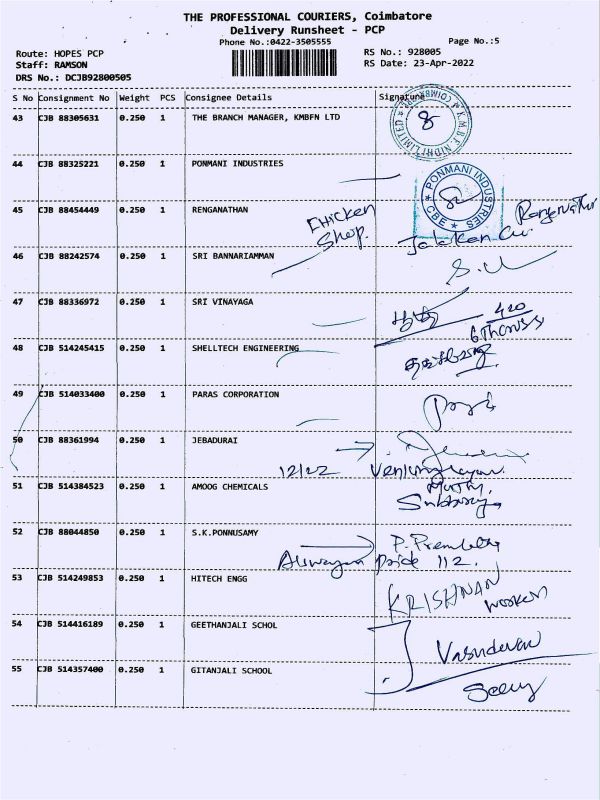 THE PROFESSIONAL COURIERS, Coimbatore
Delivery Runsheet - PCP
Phone No.:0422-3505555
Page No.:5
Route: HOPES PCP
RS No.: 928005
Staff: RAMSON
RS Date: 23-Apr-2022
DRS No.: DCJB92800505
S No Consignment No Weight PCS Consignee Details Signature
43 CJB 88305631 0.250 1 THE BRANCH MANAGER, KMBFN LTD
44 CJB 88325221 0.250 1 PONMANI INDUSTRIES
PONMANI INDUSTRIES
CBE
45 CJB 88454449 0.250 1 RENGANATHAN
CHICKEN
Shop.
46 CJB 88242574 0.250 1 SRI BANNARIAMMAN
47 CJB 88336972 0.250 1 SRI VINAYAGA
420
48 CJB 514245415 0.250 1 SHELLTECH ENGINEERING
49 CJB 514033400 0.250 1 PARAS CORPORATION
50 CJB 88361994 0.250 1 JEBADURAI
12/22
51 CJB 514384523 0.250 1 AMOOG CHEMICALS
52 CJB 88044850 0.250 1 S.K.PONNUSAMY
pride 112.
53 CJB 514249853 0.250 1 HITECH ENGG
KRISHNAN
54 CJB 514416189 0.250 1 GEETHANJALI SCHOL
Vasudevan
55 CJB 514357400 0.250 1 GITANJALI SCHOOL